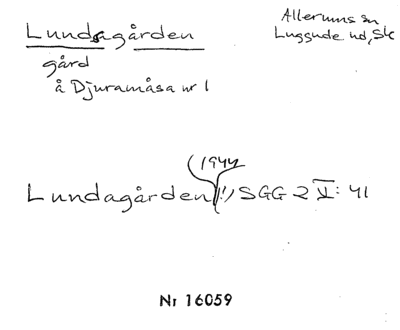 Lundagården
Allerums sn
Luggude hd, Sk
gård
å Djuramåsa nr 1
(1944
Lundagården (!) SGG 2 V: 41
Nr 16059